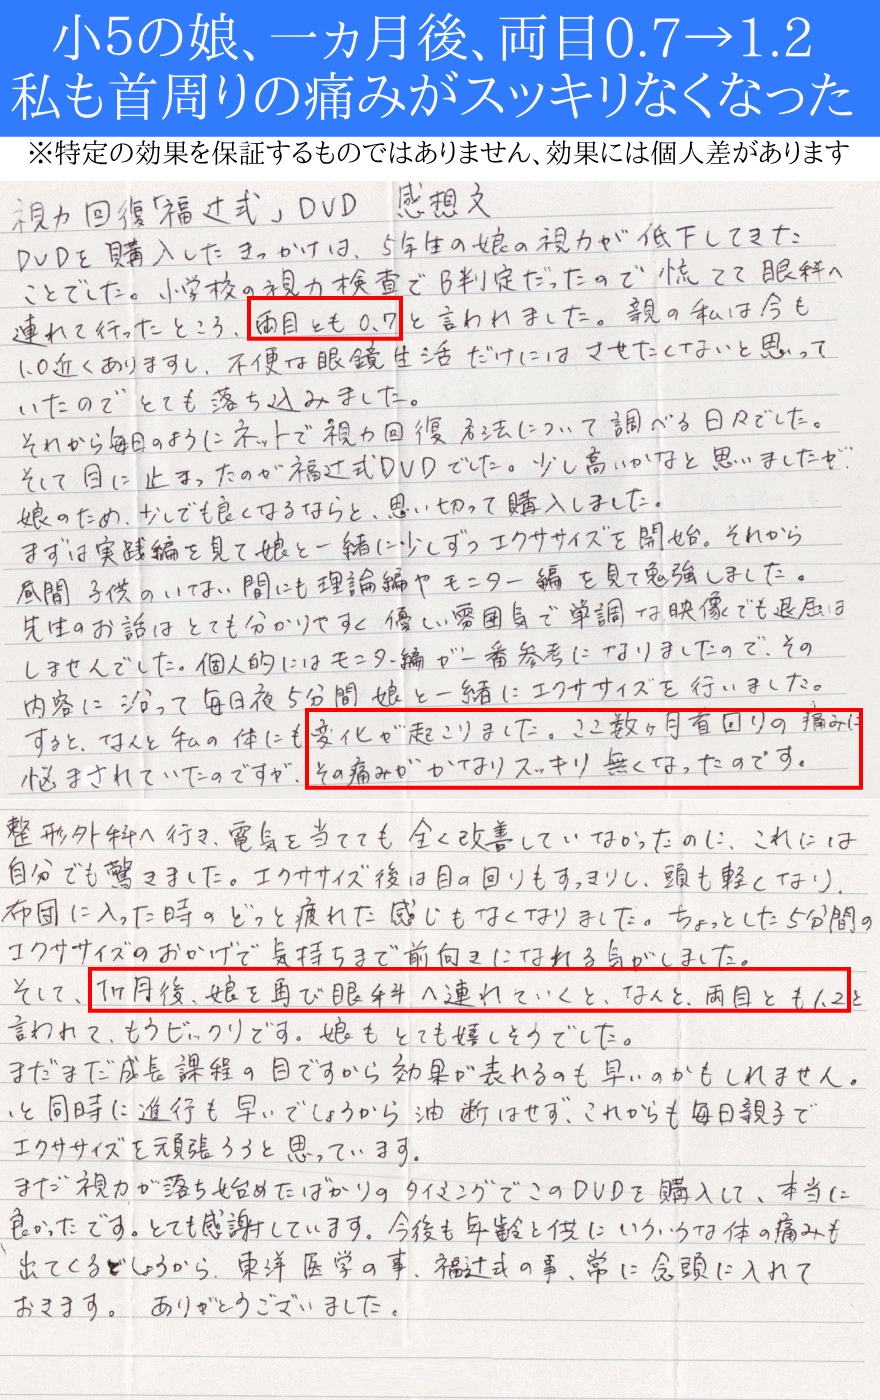 小5の娘、一ヵ月後、両目0.7→1.2
私も首周りの痛みがスッキリなくなった
※特定の効果を保証するものではありません、効果には個人差があります
視力回復「福辻式」DVD 感想文
DVDを購入したきっかけは、5年生の娘の視力が低下してきた
ことでした。小学校の視力検査でB判定だったので慌てて眼科へ
連れて行ったところ、両目とも0.7と言われました。親の私は今も
1.0近くありますし、不便な眼鏡生活だけにはさせたくないと思って
いたのでとても落ち込みました。
それから毎日のようにネットで視力回復方法について調べる日々でした。
そして目に止まったのが福辻式DVDでした。少し高いかなと思いましたが、
娘のため、少しでも良くなるならと、思い切って購入しました。
まずは実践編を見て娘と一緒に少しずつエクササイズを開始。それから
昼間子供のいない間にも理論編やモニター編を見て勉強しました。
先生のお話はとても分かりやすく優しい雰囲気で単調な映像でも退屈は
しませんでした。個人的にはモニター編が一番参考になりましたので、その
内容に沿って毎日夜5分間娘と一緒にエクササイズを行いました。
すると、なんと私の体にも変化が起こりました。ここ数ヶ月首回りの痛みに
悩まされていたのですが、その痛みがかなりスッキリ無くなったのです。
整形外科へ行き、電気を当てても全く改善していなかったのに、これには
自分でも驚きました。エクササイズ後は目の回りもすっきりし、頭も軽くなり、
布団に入った時のどっと疲れた感じもなくなりました。ちょっとした5分間の
エクササイズのおかげで気持ちまで前向きになれる気がしました。
そして、1ヶ月後、娘を再び眼科へ連れていくと、なんと、両目とも1.2と
言われて、もうビックリです。娘もとても嬉しそうでした。
まだまだ成長課程の目ですから効果が表れるのも早いのかもしれません。
と同時に進行も早いでしょうから油断はせず、これからも毎日親子で
エクササイズを頑張ろうと思っています。
まだ視力が落ち始めたばかりのタイミングでこのDVDを購入して、本当に
良かったです。とても感謝しています。今後も年齢と供にいろいろな体の痛みも
出てくるでしょうから、東洋医学の事、福辻式の事、常に念頭に入れて
おきます。 ありがとうございました。